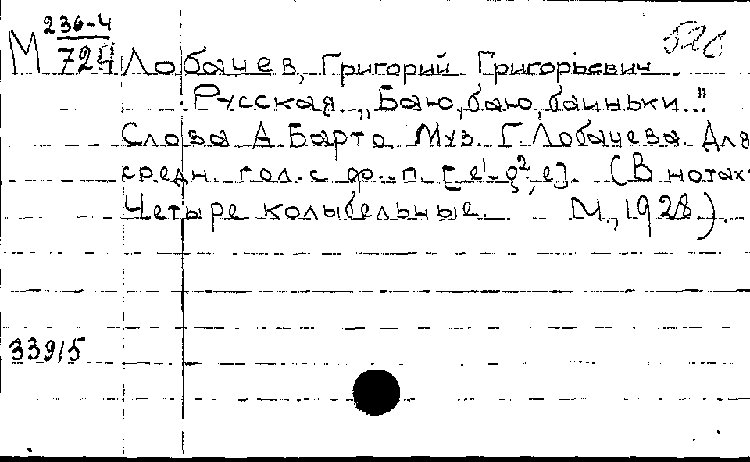 236-4
М 724
Лобачев, Григорий Григорьевич.
Русская „Баю, баю, баиньки."
Слова А. Барто. Муз. Г. Лобачева. Для
средн. гол. с ф.-п. [e¹-g², e]. (В нотах:
Четыре колыбельные. М., 1928).
339/5